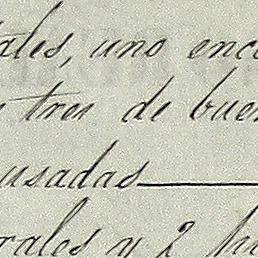 ales, uno enco
tres de buen
usadas
rales y 2 hi